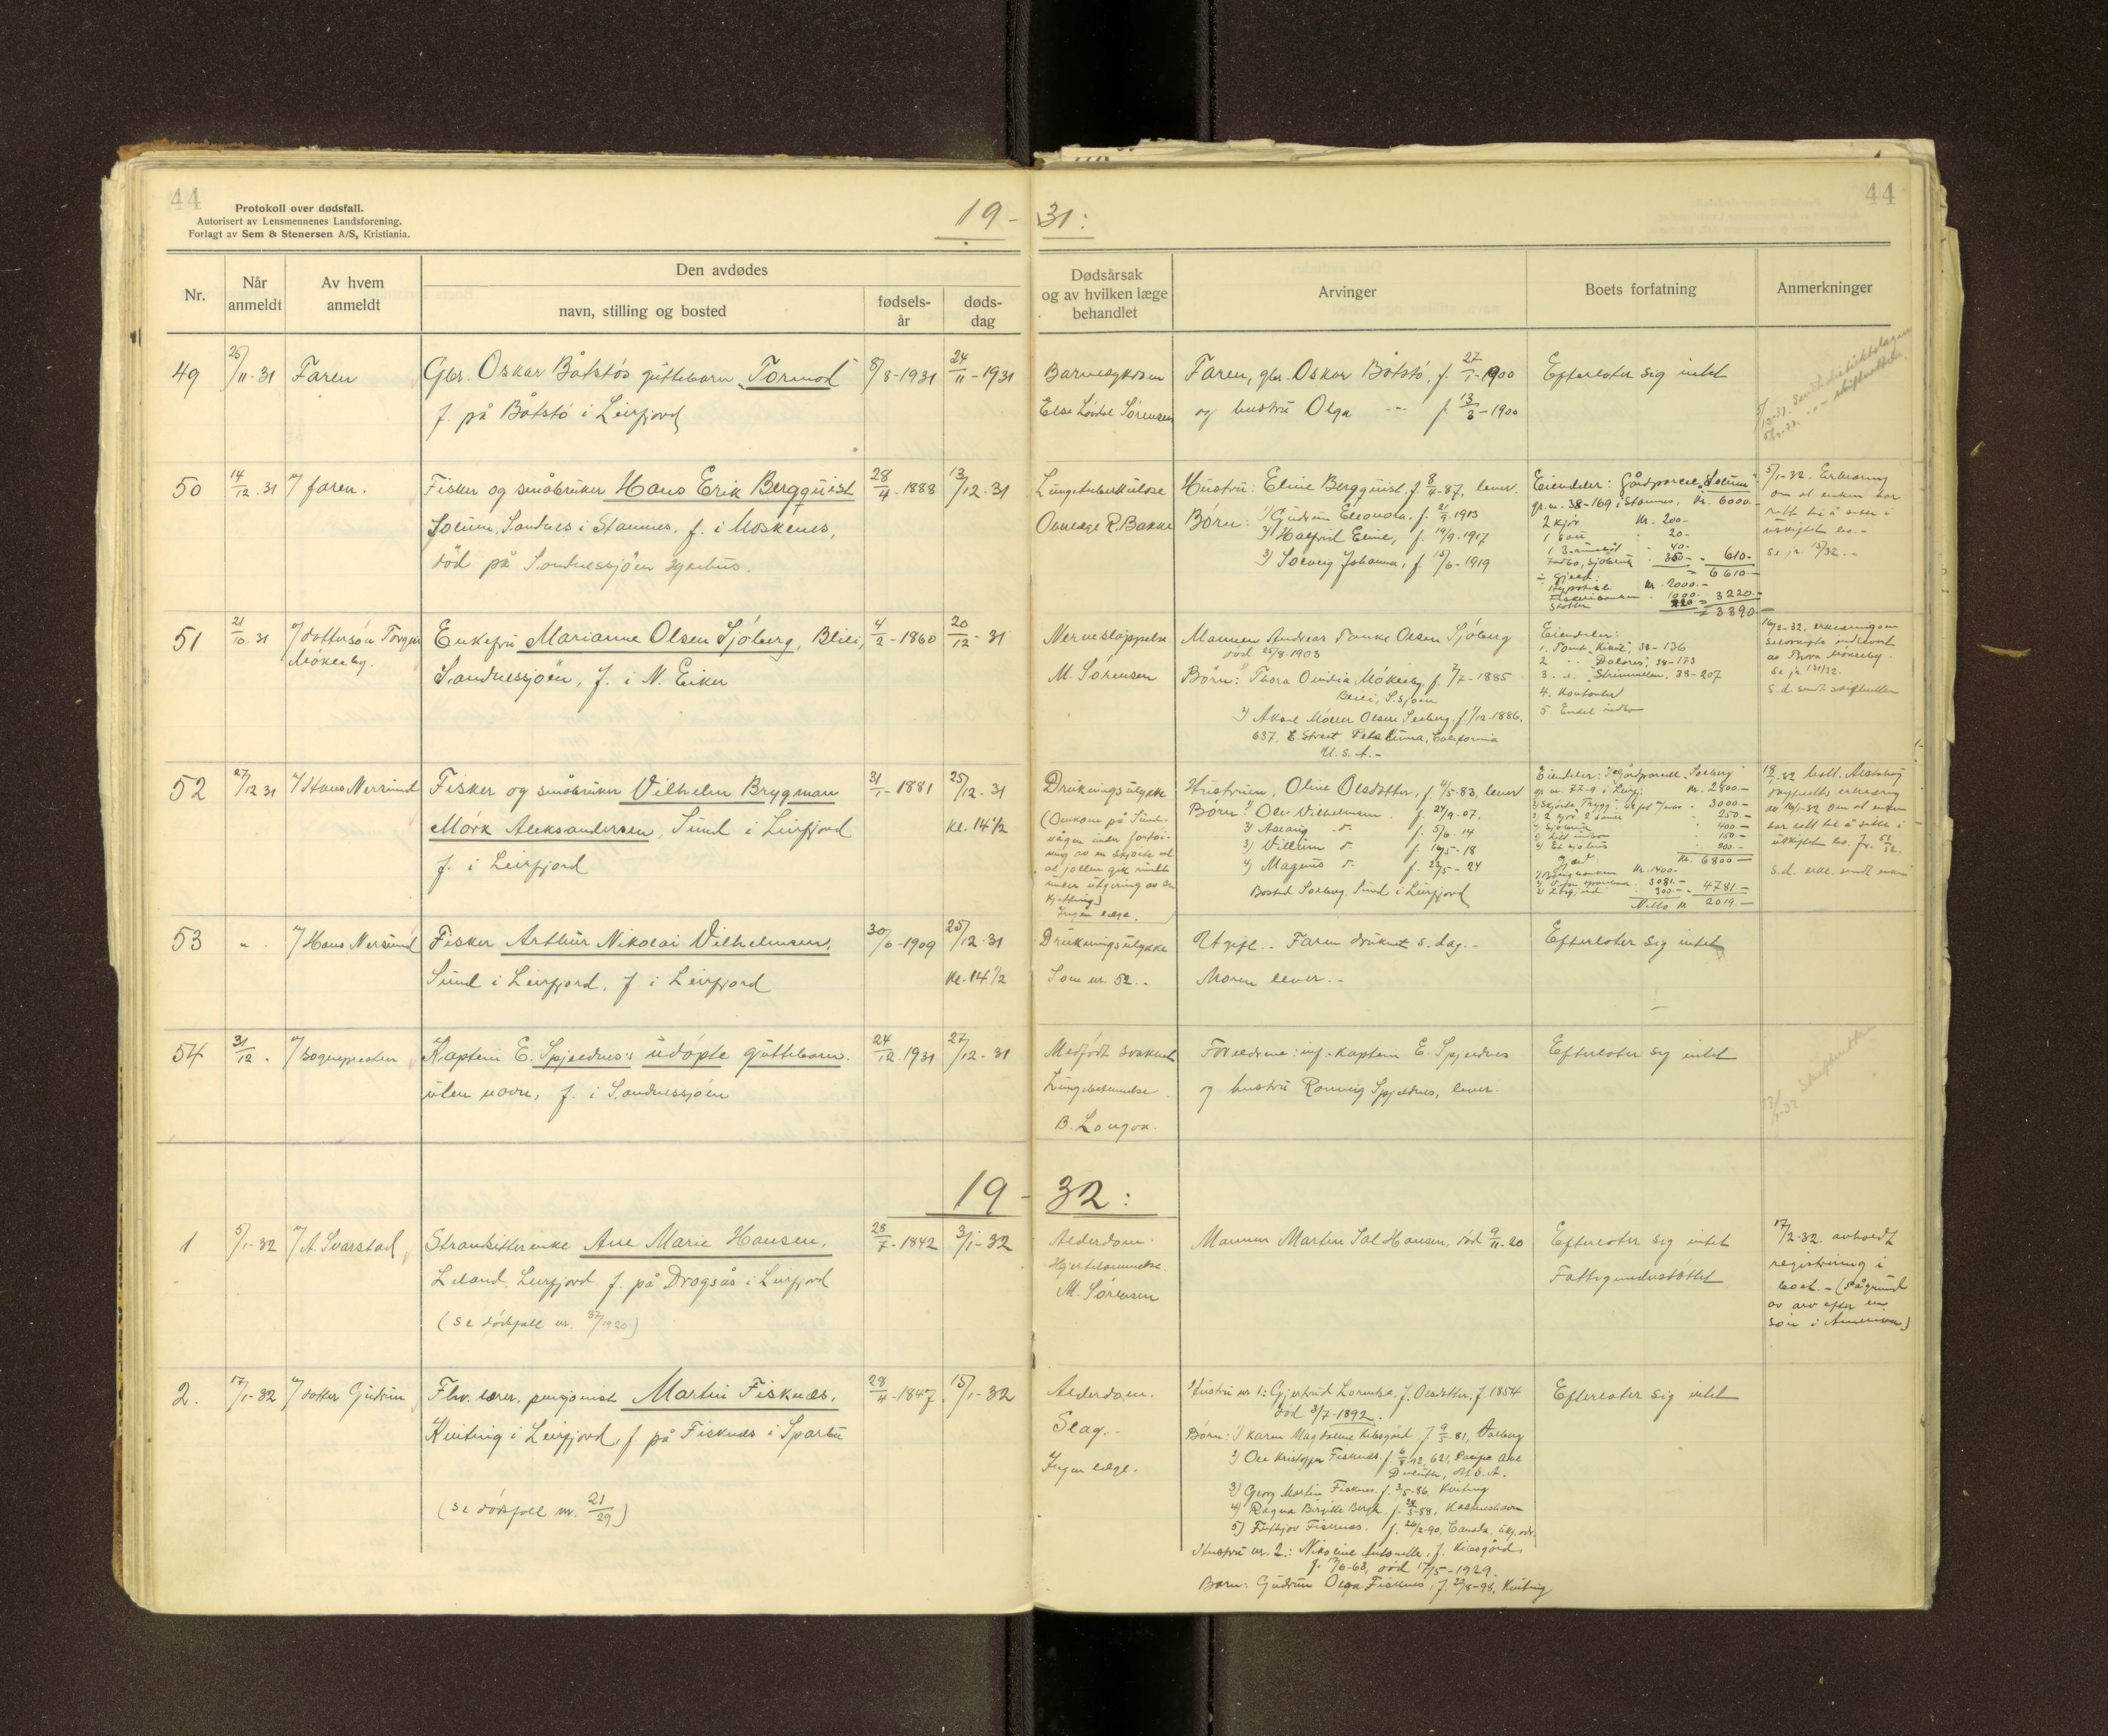 44
Protokoll over dødsfall.
Autorisert av Lensmennenes Landsforening.
Forlagt av Sem & Stenersen A/S, Kristiania.
19- 31:
44
Nr.
Når anmeldt
Av hvem anmeldt
Den avdødes
navn, stilling og bosted
fødsels-år
døds-dag
Dødsårsak og av hvilken læge behandlet
Arvinger
Boets forfatning
Anmerkninger
49 25/11-31 Faren
Gbr. Oskar Båtstøs guttebarn "Tormod"
f. på Båtstø i Leirfjord
8/8-1931 24/11-1931
Else Sørensen
Faren, gbr. Oskar Båtstø, f. 27/1-1900
og hustru Olga -"- f. 13/3-1900
Efterlater sig intet
50 14/12-31 v/ faren.
Fisker og småbruker Hans Erik Bergquist
Solum, Sandnes i Stamnes. f. i Moskenes,
død på Sandnessjøen sykehus.
28/4-1888 13/12-31
Lungetuberkulose
Overlæge R. Bakke
Hustru: Eline Bergquist, f. 8/4-87, lever.
Børn: 1) Gudrun Eleonora, f. 21/9-1913
2) Halfrid Eline, f. 19/9-1917
3) Solveig Johanna, f. 15/6-1919
Eiendeler: Gårdparcel "Solum"
gr.nr. 38-169 i Stamnes, kr. 6000.-
2 kjør kr. 200.-
1 sau 20.-
40.-
350.- 610.-
6610.-
÷ Gjeld:
Hypotek kr. 2000.-
Fiskeribanken 1000.-
Skatter 220.- 3220.-
= 3390.-
5/1-32. Erklæring
om at enken har
rett til å sitte i
uskiftet bo.-
se jr. 15/32.-
51 21/10-31 v/ dattersøn Torgeir
Møkleby.
Enkefru Marianne Olsen Sjøberg, Blili,
Sandnessjøen, f. i N. Eiker
4/2-1860 20/12-31
Nerveslappelse
M. Sørensen
Mannen Andreas Tanke Olsen Sjøberg
død 25/8-1903
Børn: 1) Thora Ovidia Møkleby, f. 7/7-1885
Blili, S.sjøen
2) Aksel Møller Olsen Seeberg, f. 1/12-1886.
637, E. Street Petaluma, California
U.S.A.-
Eiendeler:
1. Tomt "Kikut", 38-136
2 "Dolores", 38-173
3 "Strimmelen", 38-207
4. Kontanter
5. Endel indbo
16/2-32, erklæring om
selvskifte indlevert
av Thora Møkleby.
se jr. 131/32.
s.d. sendt skifteretten
52 27/12-31 v/ Hans Nersund
Fisker og småbruker Vilhelm Brygman
Mörk Aleksandersen, Sund i Leirfjord
f. i Leirfjord
31/1-1881 25/12-31
kl. 14½
Drukningsulykke
(Omkom på Sund-
vågen under fortøi-
ning av en skjøite ved
at jollen gik rundt
under utgivning av en
kjetting)
Ingen læge.
Hustruen, Oline Olsdatter, f. 4/5-83, lever
Børn: 1) Ole Vilhelmsen f. 24/9-07.
2) Aslaug d. f. 5/6-14
3) Villum d. f. 16/5-18
4) Magnus d. f. 23/5-24
Bosted Solberg, Sund i Leirfjord
Eiendeler: 1 Gårdparcell "Solberg"
gr.nr. 77-9 i Leirfj. kr. 2800.-
3000.-
250.-
400.-
150.-
200.-
kr. 6800.-
Gjeld:
kr. 1400.-
3081.-
300.- 4781.-
Netto kr 2019.-
18/1-32 mott. Alstahaug
skifteretts erklæring
av 14/1-32 om at enken
har rett til å sitte i
uskiftet bo. Jr. 51/32.
s.d. erkl. sendt enken
53 " v/ Hans Nersund
Fisker Arthur Nikolai Vilhelmsen,
Sund i Leirfjord, f i Leirfjord
30/6-1909 25/12-31
kl. 14½
Drukningsulykke
Som nr. 52.-
Ugift. Faren druknet s. dag.-
Moren lever.-
Efterlater sig intet
54 31/12. v/ Sognepresten
Kaptein E. Spjeldnes's udøpte guttebarn.
uten navn, f. i Sandnessjøen
24/12.1931 27/12-31
Medfødt svakhet
Lungebetennelse
B. Langva.
Foreldrene: inf.-kaptein E. Spjeldnes
og hustru Ronnvig Spjeldnes, lever.
Efterlater sig intet
19- 32:
1 5/1-32 v/ A. Svarstad
Strandsitterenke Ane Marie Hansen,
Leland, Leirfjord. f. på Dragsås i Leirfjord
(se dødsfall nr. 37/1920)
28/7-1842 3/1-32
Alderdom.
Hjertelammelse.
M. Sørensen
Mannen Martin Sal Hansen, død 9/11-20
Efterlater sig intet
Fattigunderstøttet
17/2-32. avholdt
registrering i
boet.- (På grund
av arv efter en
søn i Amerika)
2. 17/1-32 v/ datter Gudrun
Fhv. lærer, pensjonist Martin Fisknes,
Kviting i Leirfjord, f på Fisknes i Sparbu
(se dødsfall nr. 21/29)
28/4-1847 15/1-32
Alderdom.
Slag.-
Ingen læge.
Hustru nr 1: Gjertrud Lorentse, f. Olsdatter, f. 1854
død 3/7-1892.
Børn: 1) Karen Magdalene Kibsgård, f 9/5-81,
2) Ole Kristoffer Fisknes, f.
Duluth, U.S.A.
3) Georg Martin Fisknes, f. 3/5-86. Kviting
4) Ragna Birgitte Bergh,
5) Fritjov Fisknes, f. 26/2-90, Canada,
Hustru nr. 2.: Nikoline Antonette, f. Kibsgård,
f. 17/6-63, død 17/5-1929.
Barn: Gudrun Olga Fisknes, f. 22/8-98, Kviting